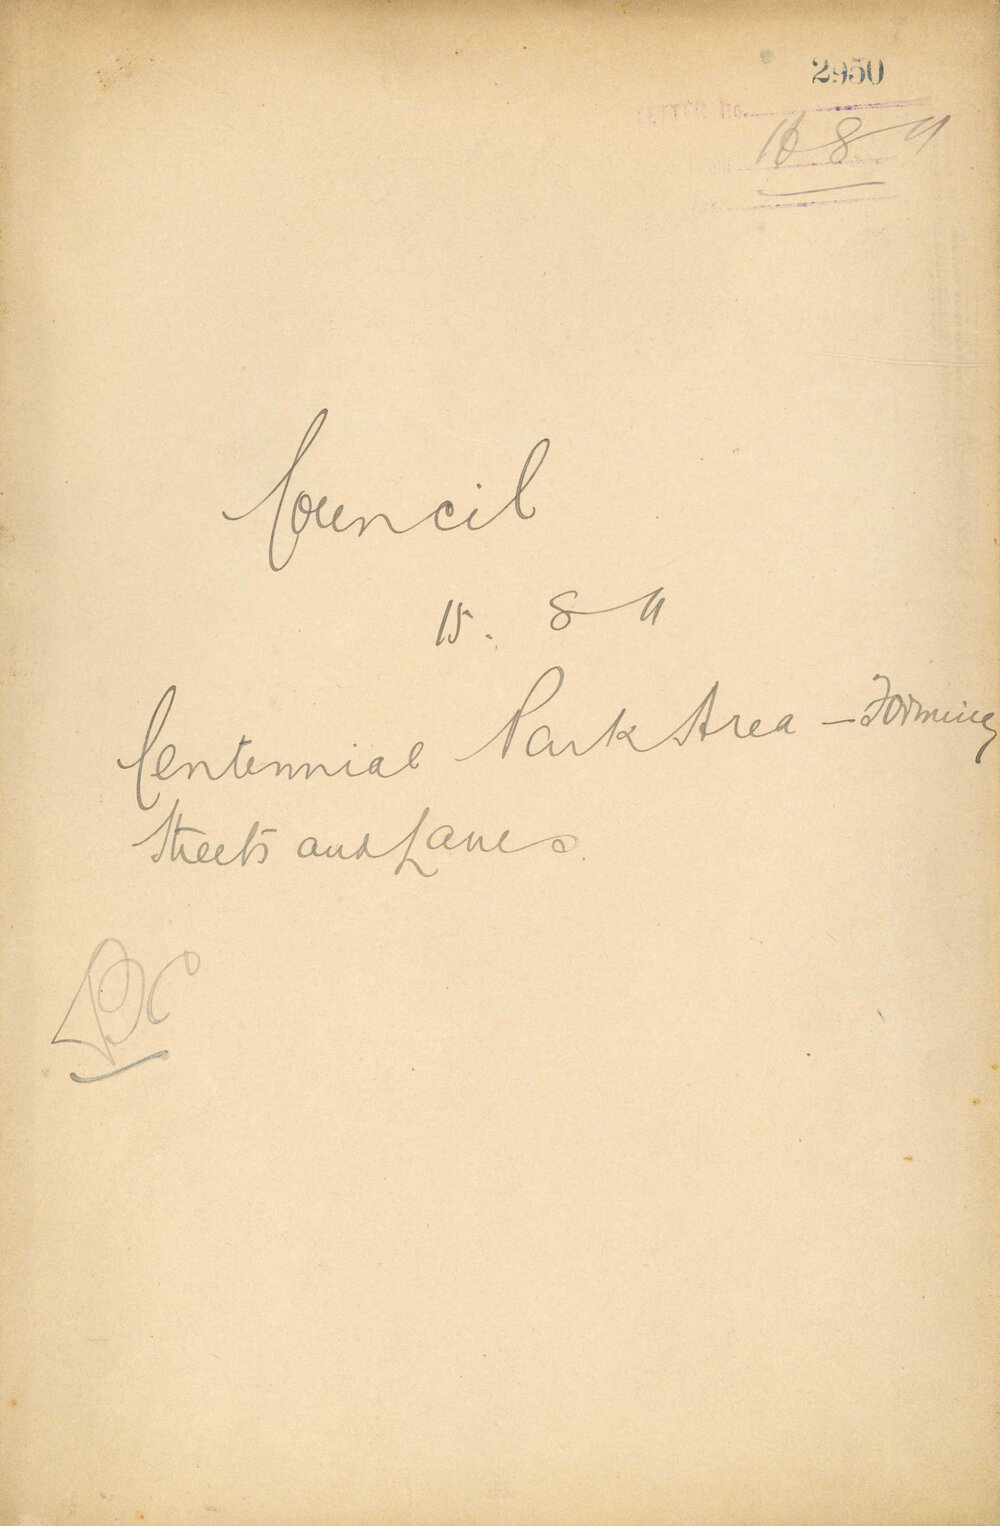 2950
LETTER No.
16 8 11
Council
15. 8 11
Centennial Park Area — Forming
Streets and Lanes.